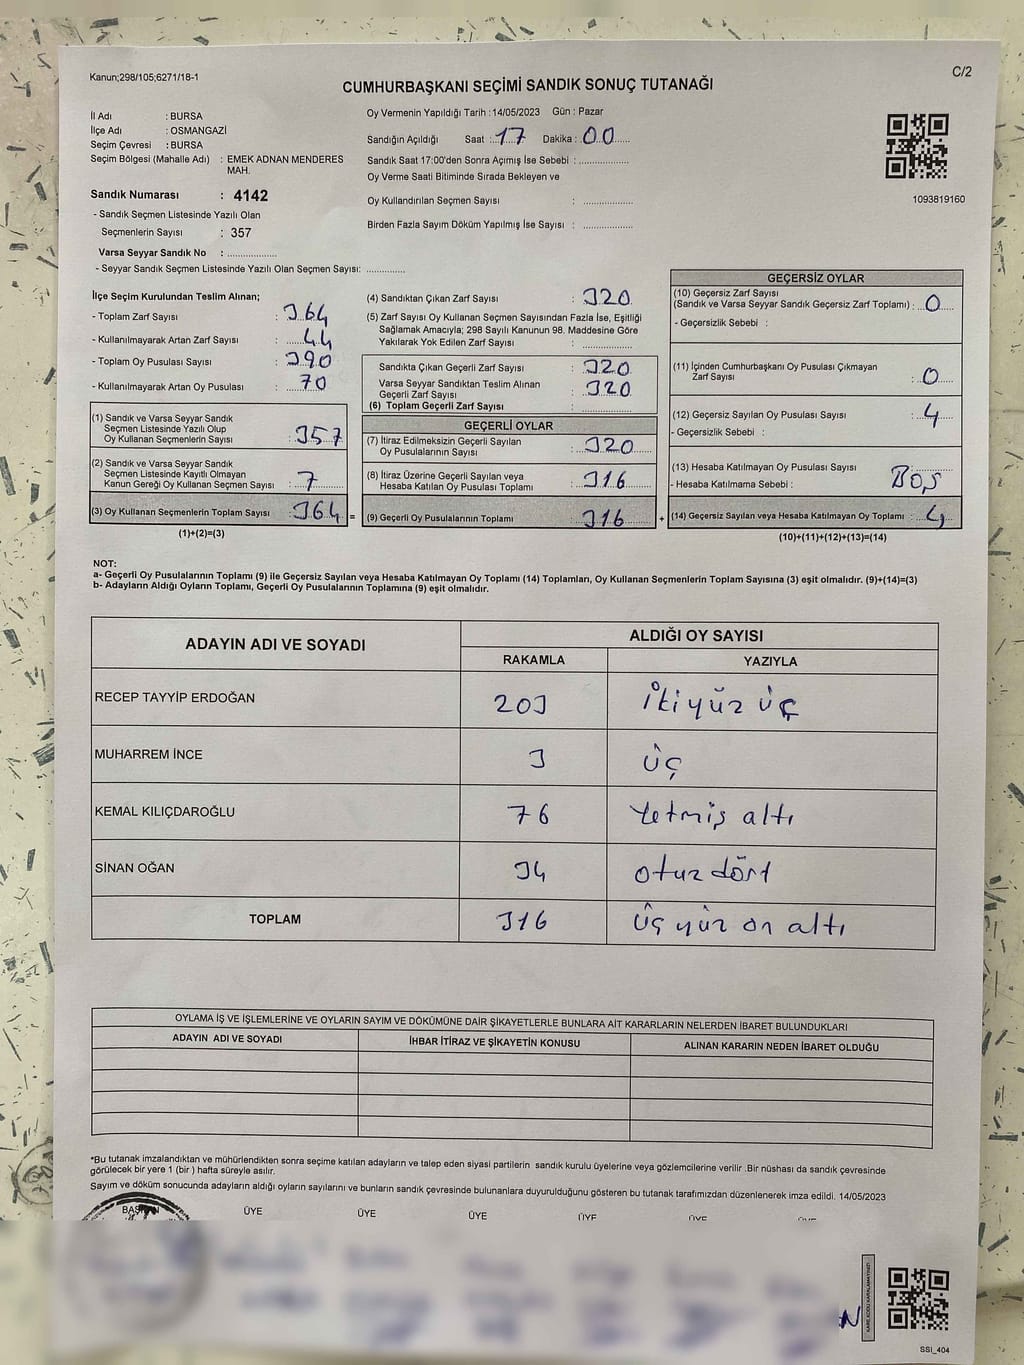 Kanun;298/105;6271/18-1
C/2
CUMHURBAŞKANI SEÇİMİ SANDIK SONUÇ TUTANAĞI
İl Adı : BURSA
İlçe Adı : OSMANGAZİ
Seçim Çevresi : BURSA
Seçim Bölgesi (Mahalle Adı) : EMEK ADNAN MENDERES
MAH.
Sandık Numarası : 4142
- Sandık Seçmen Listesinde Yazılı Olan
Seçmenlerin Sayısı : 357
Varsa Seyyar Sandık No :
- Seyyar Sandık Seçmen Listesinde Yazılı Olan Seçmen Sayısı:
Oy Vermenin Yapıldığı Tarih :14/05/2023 Gün : Pazar
Sandığın Açıldığı Saat : 17 Dakika : 00
Sandık Saat 17:00'den Sonra Açımış İse Sebebi :
Oy Verme Saati Bitiminde Sırada Bekleyen ve
Oy Kullandırılan Seçmen Sayısı :
Birden Fazla Sayım Döküm Yapılmış İse Sayısı :
1093819160
İlçe Seçim Kurulundan Teslim Alınan;
- Toplam Zarf Sayısı : 364
- Kullanılmayarak Artan Zarf Sayısı : 44
- Toplam Oy Pusulası Sayısı : 390
- Kullanılmayarak Artan Oy Pusulası : 70
(1) Sandık ve Varsa Seyyar Sandık
Seçmen Listesinde Yazılı Olup
Oy Kullanan Seçmenlerin Sayısı : 357
(2) Sandık ve Varsa Seyyar Sandık
Seçmen Listesinde Kayıtlı Olmayan
Kanun Gereği Oy Kullanan Seçmen Sayısı : 7
(3) Oy Kullanan Seçmenlerin Toplam Sayısı : 364 =
(1)+(2)=(3)
(4) Sandıktan Çıkan Zarf Sayısı : 320
(5) Zarf Sayısı Oy Kullanan Seçmen Sayısından Fazla İse, Eşitliği
Sağlamak Amacıyla; 298 Sayılı Kanunun 98. Maddesine Göre
Yakılarak Yok Edilen Zarf Sayısı :
Sandıkta Çıkan Geçerli Zarf Sayısı : 320
Varsa Seyyar Sandıktan Teslim Alınan
Geçerli Zarf Sayısı : 320
(6) Toplam Geçerli Zarf Sayısı :
GEÇERLİ OYLAR
(7) İtiraz Edilmeksizin Geçerli Sayılan
Oy Pusulalarının Sayısı : 320
(8) İtiraz Üzerine Geçerli Sayılan veya
Hesaba Katılan Oy Pusulası Toplamı : 316
(9) Geçerli Oy Pusulalarının Toplamı : 316 +
GEÇERSİZ OYLAR
(10) Geçersiz Zarf Sayısı
(Sandık ve Varsa Seyyar Sandık Geçersiz Zarf Toplamı) : 0
- Geçersizlik Sebebi :
(11) İçinden Cumhurbaşkanı Oy Pusulası Çıkmayan
Zarf Sayısı : 0
(12) Geçersiz Sayılan Oy Pusulası Sayısı : 4
- Geçersizlik Sebebi :
(13) Hesaba Katılmayan Oy Pusulası Sayısı :
- Hesaba Katılmama Sebebi : BOŞ
(14) Geçersiz Sayılan veya Hesaba Katılmayan Oy Toplamı : 4
(10)+(11)+(12)+(13)=(14)
NOT:
a- Geçerli Oy Pusulalarının Toplamı (9) ile Geçersiz Sayılan veya Hesaba Katılmayan Oy Toplamı (14) Toplamları, Oy Kullanan Seçmenlerin Toplam Sayısına (3) eşit olmalıdır. (9)+(14)=(3)
b- Adayların Aldığı Oyların Toplamı, Geçerli Oy Pusulalarının Toplamına (9) eşit olmalıdır.
ADAYIN ADI VE SOYADI ALDIĞI OY SAYISI
RAKAMLA YAZIYLA
RECEP TAYYİP ERDOĞAN 203 ikiyüz üç
MUHARREM İNCE 3 üç
KEMAL KILIÇDAROĞLU 76 Yetmiş altı
SİNAN OĞAN 34 otuz dört
TOPLAM 316 üç yüz on altı
OYLAMA İŞ VE İŞLEMLERİNE VE OYLARIN SAYIM VE DÖKÜMÜNE DAİR ŞİKAYETLERLE BUNLARA AİT KARARLARIN NELERDEN İBARET BULUNDUKLARI
ADAYIN ADI VE SOYADI İHBAR İTİRAZ VE ŞİKAYETİN KONUSU ALINAN KARARIN NEDEN İBARET OLDUĞU
*Bu tutanak imzalandıktan ve mühürlendikten sonra seçime katılan adayların ve talep eden siyasi partilerin sandık kurulu üyelerine veya gözlemcilerine verilir .Bir nüshası da sandık çevresinde
görülecek bir yere 1 (bir ) hafta süreyle asılır.
Sayım ve döküm sonucunda adayların aldığı oyların sayılarını ve bunların sandık çevresinde bulunanlara duyurulduğunu gösteren bu tutanak tarafımızdan düzenlenerek imza edildi. 14/05/2023
BAŞKAN ÜYE ÜYE ÜYE ÜYE ÜYE ÜYE
SSI_404